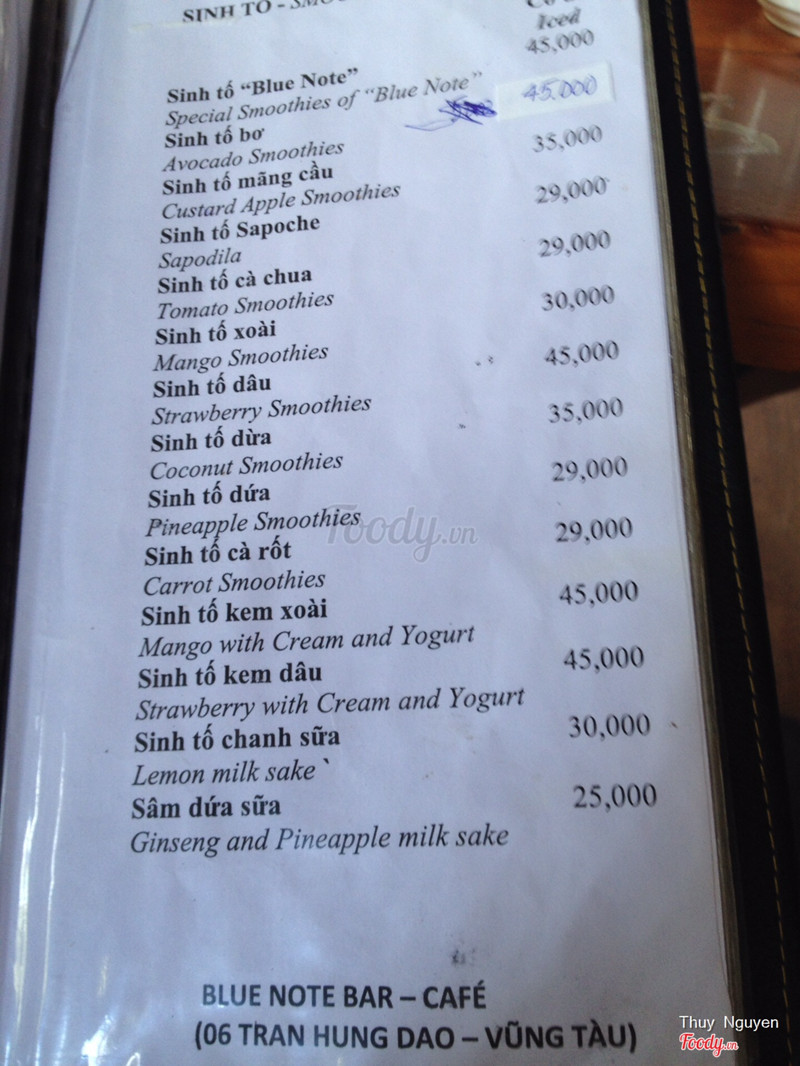 SINH TỐ -
Iced
Sinh tố “Blue Note” 45,000
Special Smoothies of “Blue Note”
Sinh tố bơ 45.000
Avocado Smoothies
Sinh tố mãng cầu 35,000
Custard Apple Smoothies
Sinh tố Sapoche 29,000
Sapodila
Sinh tố cà chua 29,000
Tomato Smoothies
Sinh tố xoài 30,000
Mango Smoothies
Sinh tố dâu 45,000
Strawberry Smoothies
Sinh tố dừa 35,000
Coconut Smoothies
Sinh tố dứa 29,000
Pineapple Smoothies
Sinh tố cà rốt 29,000
Carrot Smoothies
Sinh tố kem xoài 45,000
Mango with Cream and Yogurt
Sinh tố kem dâu 45,000
Strawberry with Cream and Yogurt
Sinh tố chanh sữa 30,000
Lemon milk sake
Sâm dứa sữa 25,000
Ginseng and Pineapple milk sake
Foody.vn
BLUE NOTE BAR – CAFÉ
(06 TRAN HUNG DAO – VŨNG TÀU)
Thuy Nguyen
Foody.vn